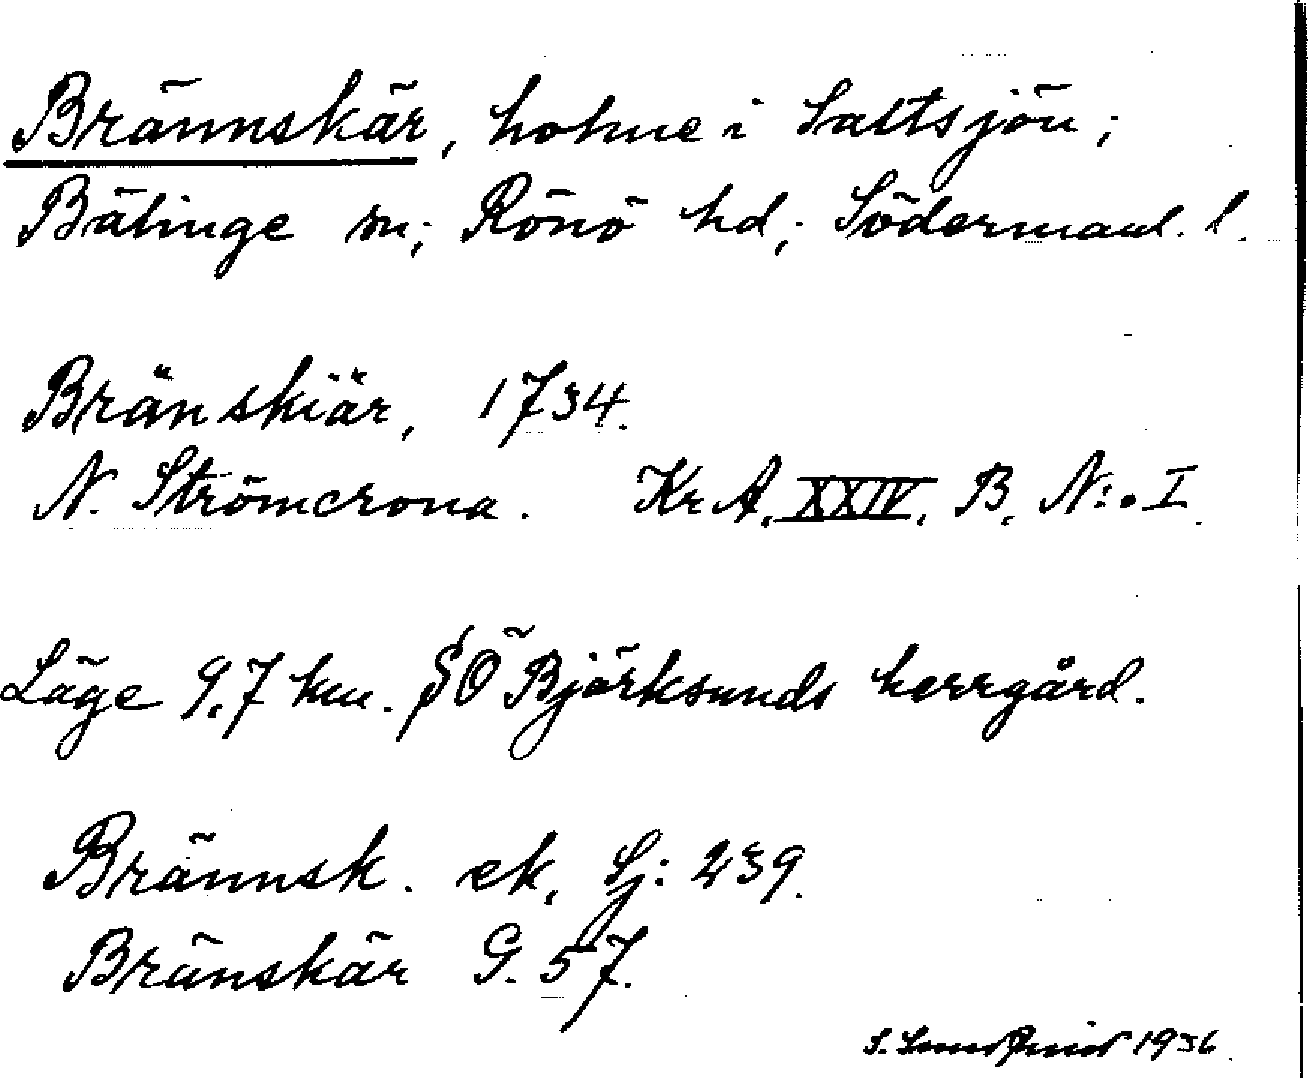 Brännskär, holme i Saltsjön;
Bälinge sn; Rönö hd; Södermanl. l.
Bränskiär, 1734.
N. Strömcrona. Kr A, XXIV, B, N:o I.
Läge 9,7 km. SO Björksunds herrgård.
Brännsk. ek, Sj: 239.
Bränskär G. 57.
S. 1936.